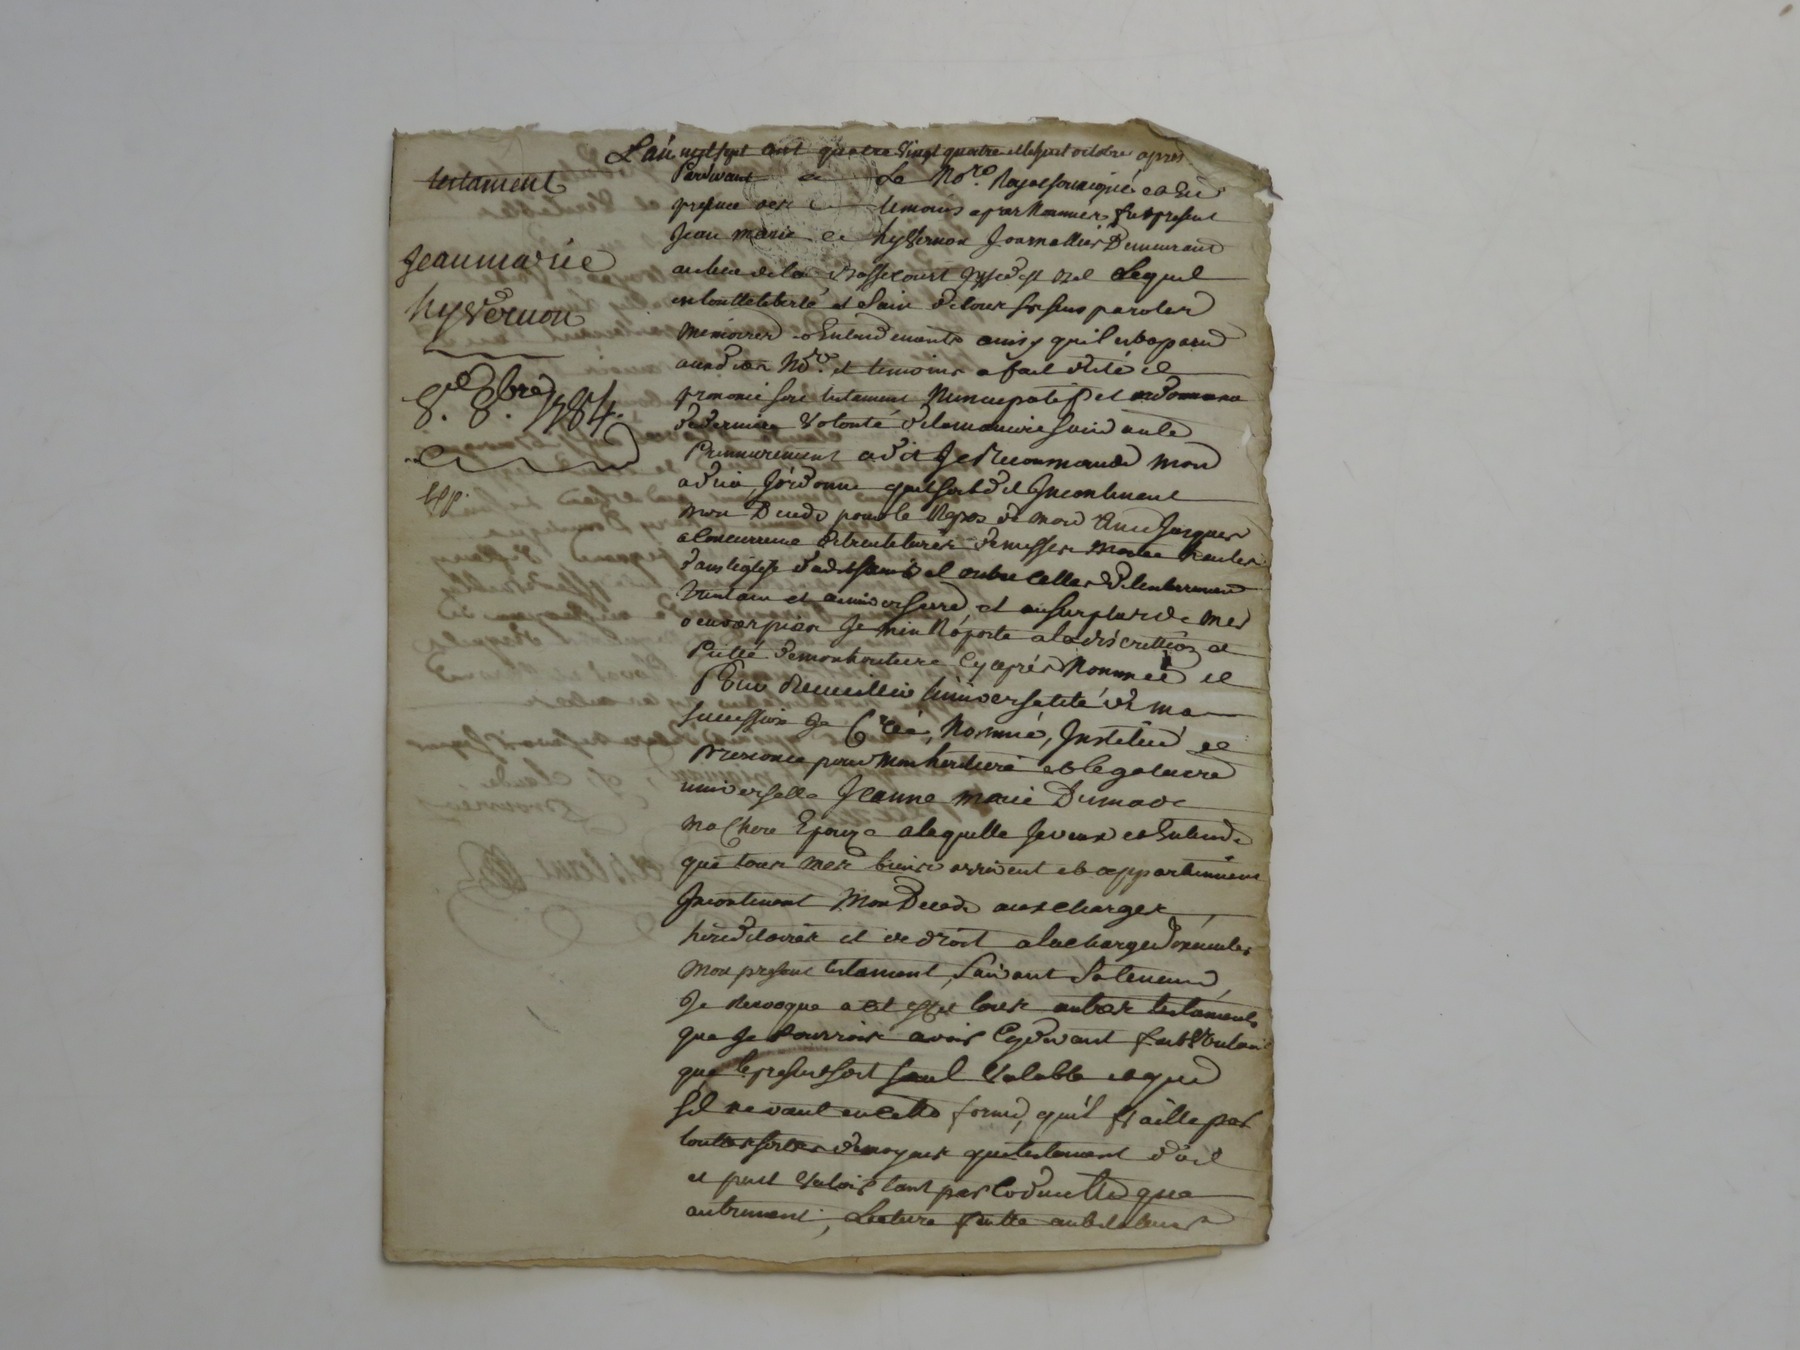 testament
Jean marie
hyvernon
8.e 8.bre 1784.
L'an mil sept cent quatre vingt quatre et le huit octobre après
Pardevant le No.re Royal soussigné et En
presence des temoins apres Nommés fut present
Jean marie hyvernon Journallier Demeurant
au lieu de la Lequel
en toutte liberté et sain de tous ses sens paroles
Memoires et Entendements ainsy quil est aparu
auxdits No.re et temoins a fait dicté et
prononcé son testament Nuncupatif et ordonnance
de derniere Volonté de la maniere suivante
Premierement a dit Je Recommande mon
a dieu, J'ordonne quil soit dit Incontinent
mon Decede pour le Repos de mon Ame Jusques
a Concurrence de trente livres de messes
dans l'eglise et outre celles d'enterrement
et anniversaire, et au surplus de mes
oeuvres pies Je m'en Raporte a la discrettion et
Pietté de mon heritiere Cy après Nommée et
Pour Recueillir l'universalité de ma
succession Je Créé, Nommé, Institué et
Prononce pour mon heritiere et legataire
universelle Jeanne marie Dumas
ma Chere Epouze a laquelle Je veux et Entends
que tous mes biens arrivent et appartiennent
Incontinent Mon Decede aux charges
hereditaires et de droit a la charge d'executer
mon present testament, suivant sa teneur,
Je Revoque a cet effet tous autres testaments
que Je Pourrois avoir Cy devant fait Voulant
que le present soit seul Valable et que
s'il ne vaut en cette forme, qu'il Vaille par
touttes sortes de moyens que testament doit
et peut Valoir tant par Codicille que
autrement, Lecture faitte au testateur